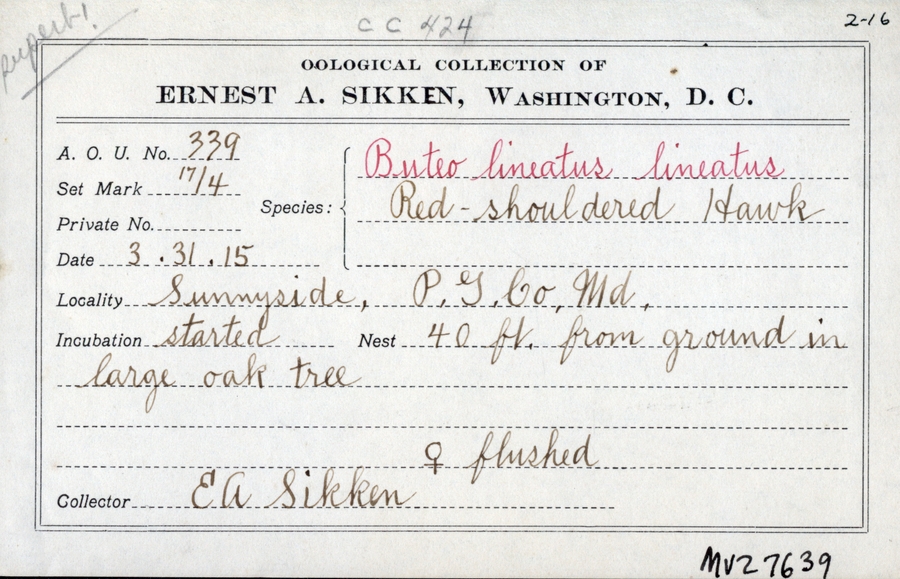 rupert!
C C 424
2-16
OOLOGICAL COLLECTION OF
ERNEST A. SIKKEN, WASHINGTON, D. C.
A. O. U. No. 339
Set Mark 17/4
Private No.
Date 3.31.15
Species:
Buteo lineatus lineatus
Red-shouldered Hawk
Locality Sunnyside, P.G.Co, Md.
Incubation started Nest 40 ft. from ground in
large oak tree
♀ flushed
Collector EA Sikken
MVZ 7639